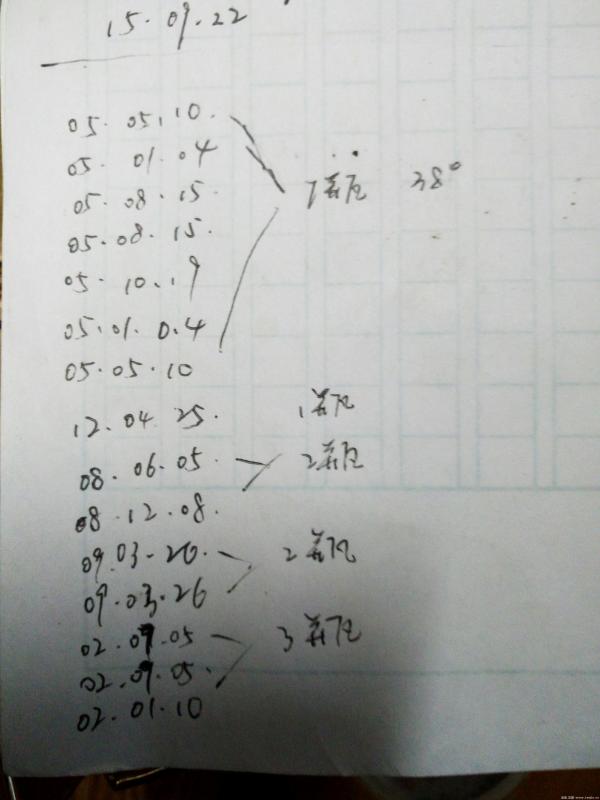 15.09.22
05.05.10.
05.01.04
05.08.15.
05.08.15.
05.10.19
05.01.04
05.05.10
7 38°
12.04.25. 1
08.06.05
08.12.08.
2
09.03-26.
09.03.26
2
02.09.05
02.09.05.
02.01.10
3